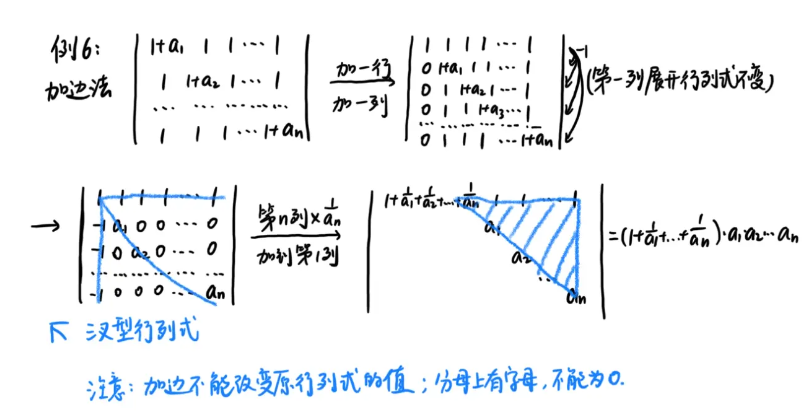 例6:
加边法
| 1+a₁ 1 1 ⋯ 1 |
| 1 1+a₂ 1 ⋯ 1 |
| ⋯ ⋯ ⋯ ⋯ |
| 1 1 1 ⋯ 1+aₙ |
加一行
加一列
| 1 1 1 1 ⋯ 1 |
| 0 1+a₁ 1 1 ⋯ 1 |
| 0 1 1+a₂ 1 ⋯ 1 |
| 0 1 1 1+a₃ ⋯ 1 |
| ⋯ ⋯ ⋯ ⋯ |
| 0 1 1 1 ⋯ 1+aₙ |
-1
(第一列展开行列式不变)
→
| 1 1 1 1 ⋯ 1 |
| -1 a₁ 0 0 ⋯ 0 |
| -1 0 a₂ 0 ⋯ 0 |
| ⋯ ⋯ ⋯ ⋯ |
| -1 0 0 0 ⋯ aₙ |
第n列×1/aₙ
加到第1列
1+1/a₁+1/a₂+⋯+1/aₙ 1 1 ⋯ 1
a₁
a₂
⋱
aₙ
=(1+1/a₁+⋯+1/aₙ)·a₁a₂⋯aₙ
↖ 汉型行列式
注意:加边不能改变原行列式的值;分母上有字母,不能为0.